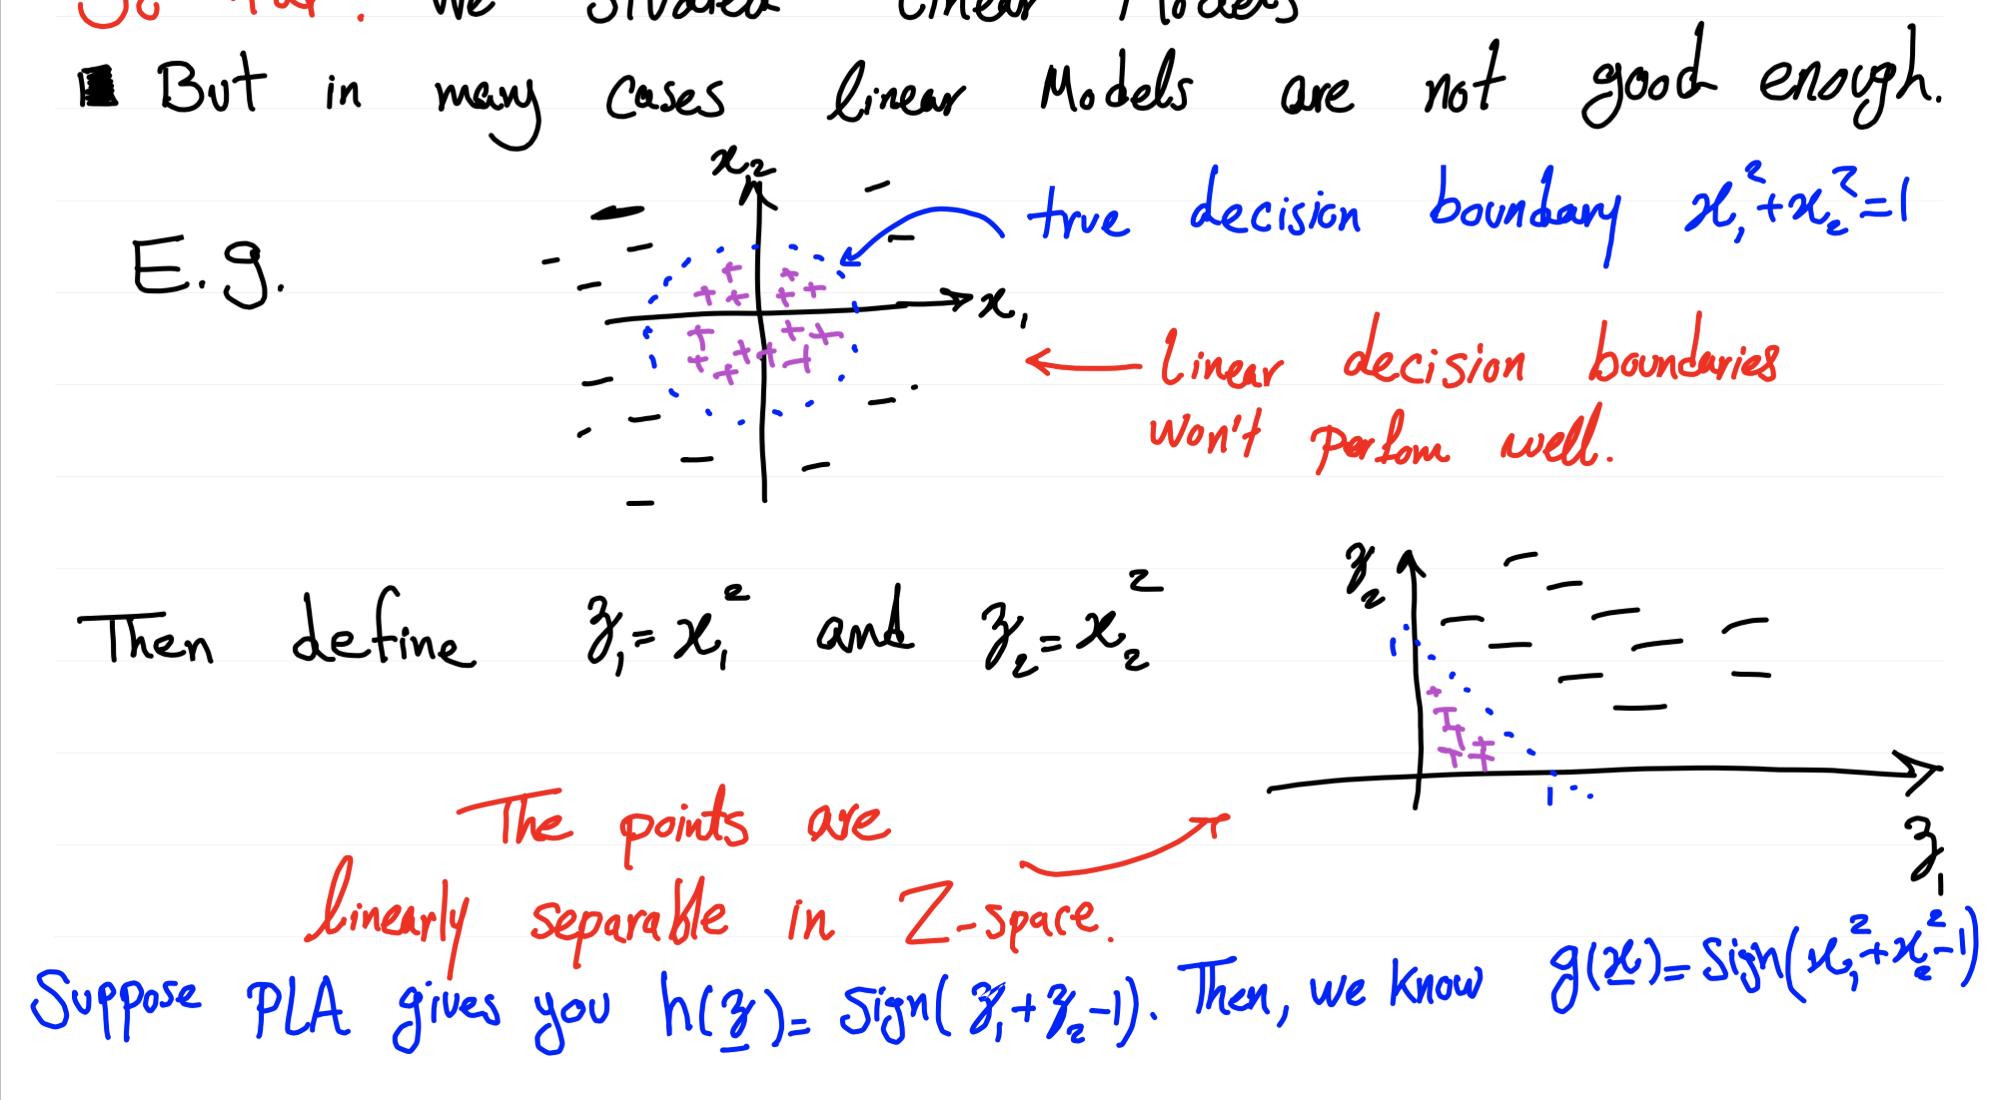 So far: We studied Linear Models
But in many cases linear Models are not good enough.
E.g.
x₂
true decision boundary x₁²+x₂²=1
x₁
linear decision boundaries
won't perfom well.
Then define z₁=x₁² and z₂=x₂²
z₂
1
1
z₁
The points are
linearly separable in Z-space.
Suppose PLA gives you h(z)= sign(z₁+z₂-1). Then, we know g(x)= sign(x₁²+x₂²-1)